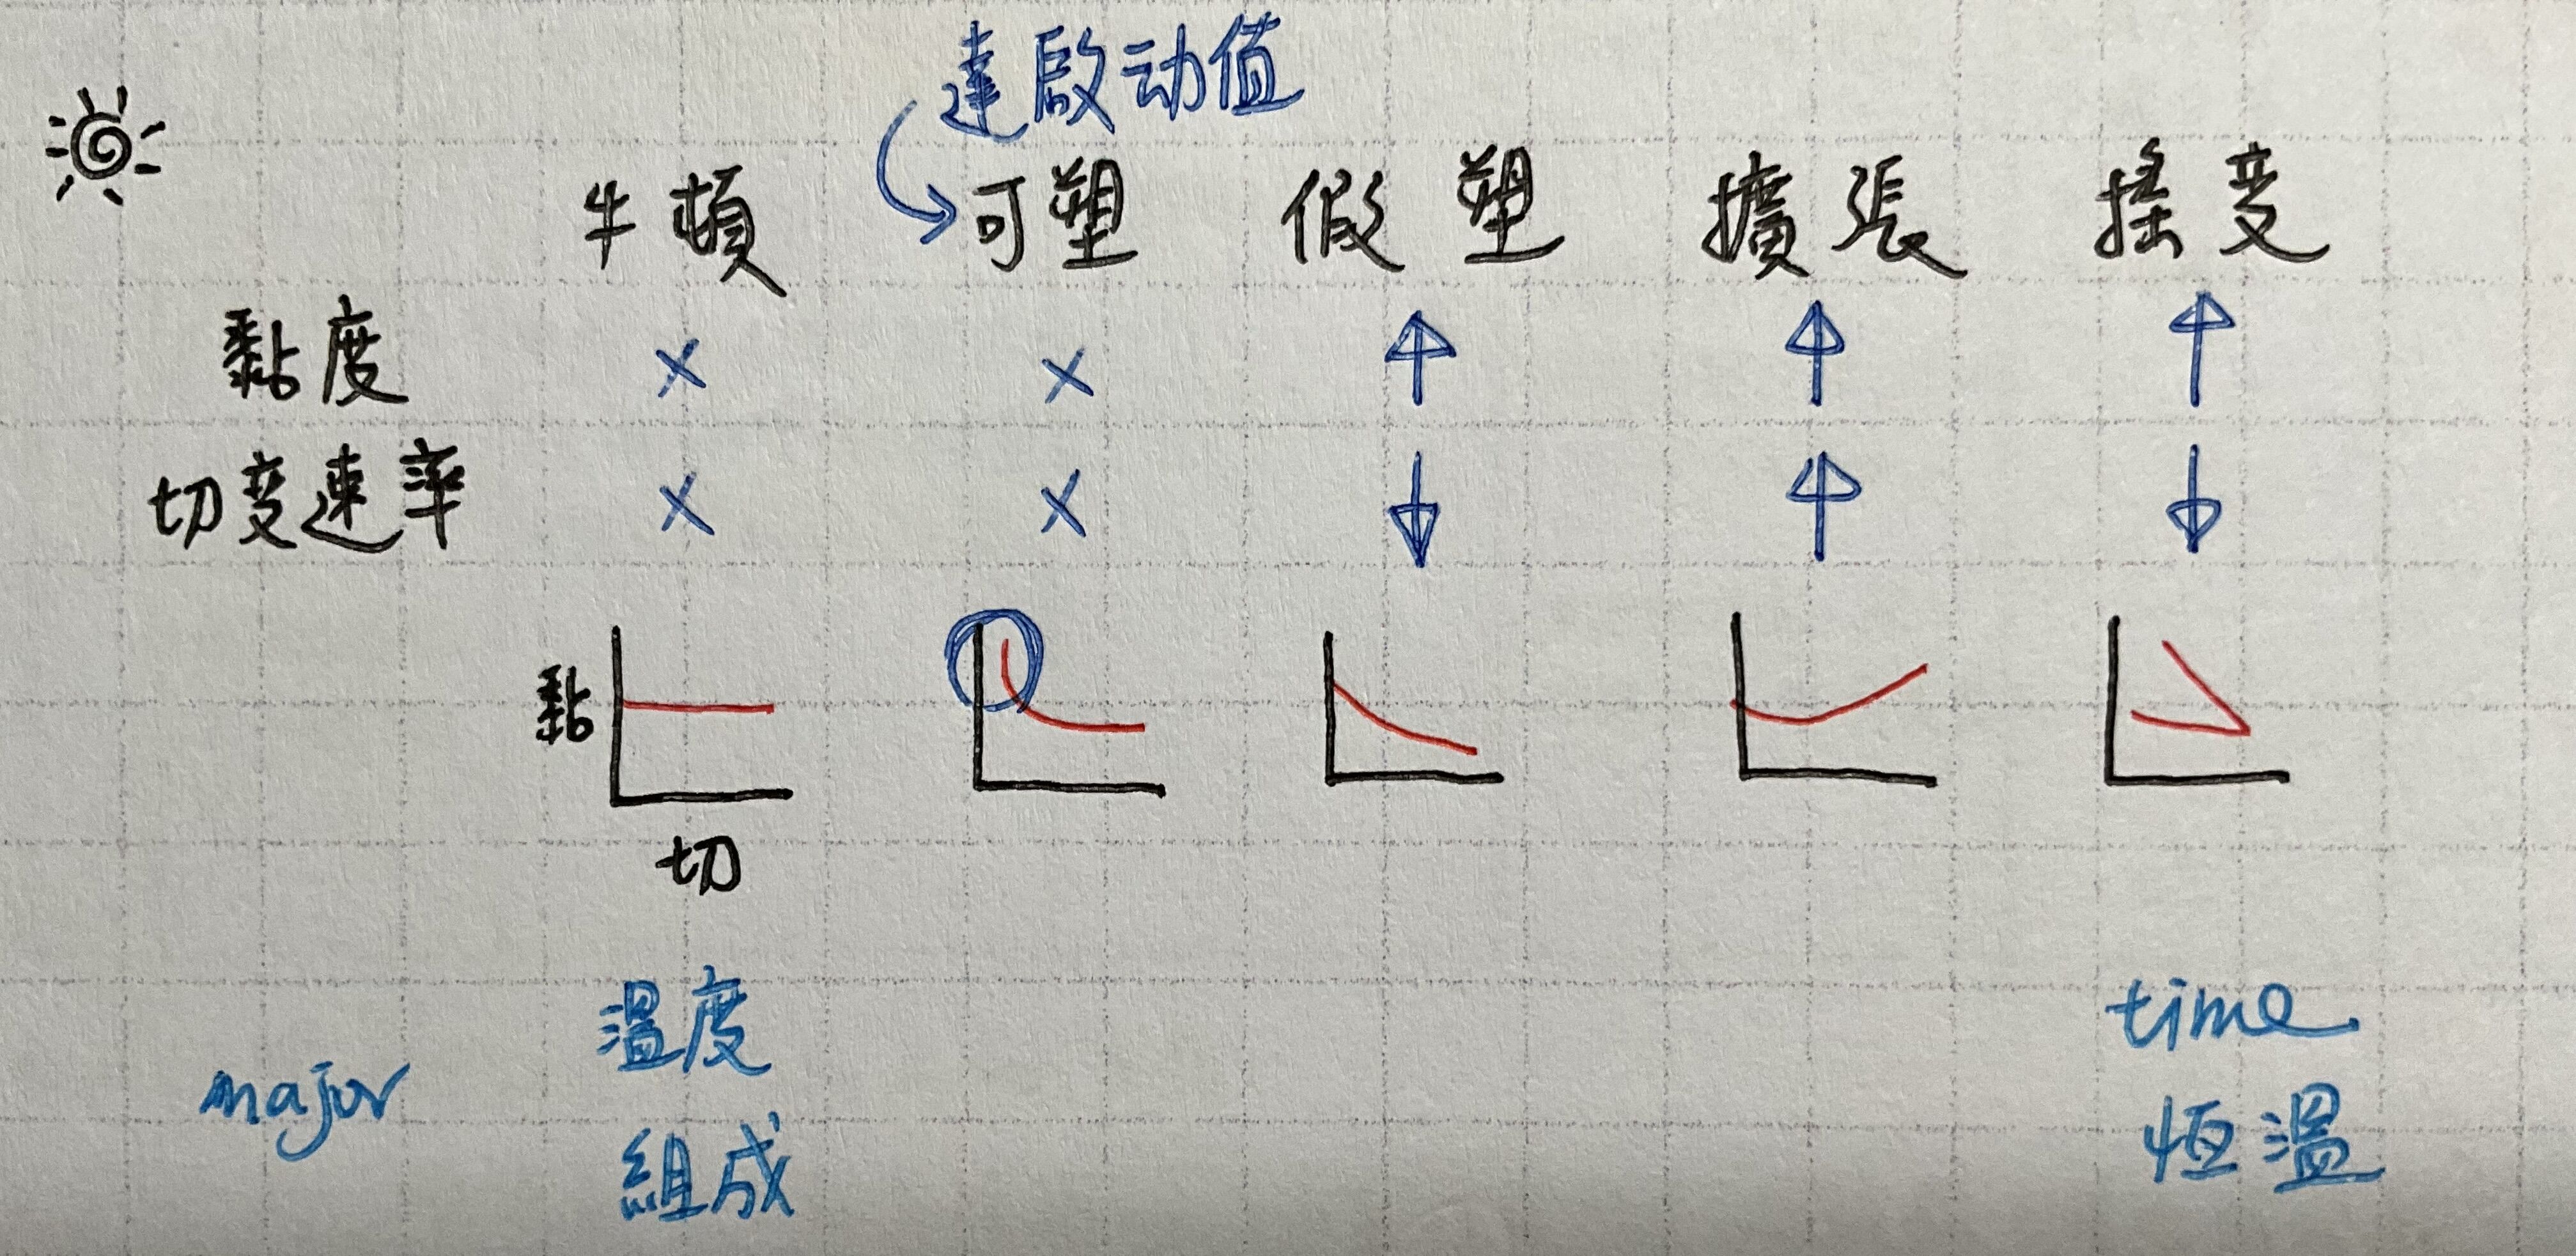 達啟动值
牛頓 可塑 假塑 擴張 搖变
黏度 × × ↑ ↑ ↑
切变速率 × × ↓ ↑ ↓
黏
切
major
溫度
組成
time
恆溫